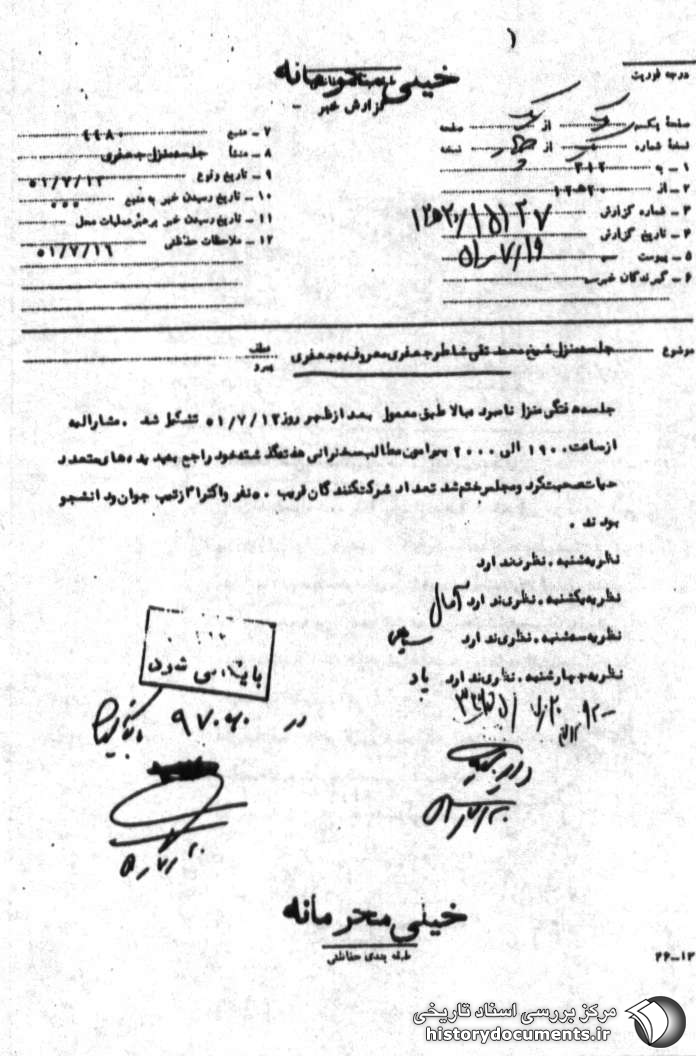 خیلی محرمانه
گزارش خبر
درجه فوریت
صفحه یکم از یک صفحه
نسخه شماره از نسخه
۱ - به ۳۱۲
۲ - از ۱۲۵۲۰
۳ - شماره گزارش ۱۲۵۲۰/۱۵۱۲۷
۴ - تاریخ گزارش ۵۱/۷/۱۹
۵ - پیوست
۶ - گیرندگان خبر
۷ - منبع ۹۹۸۰
۸ - منشأ جلسه منزل جعفری
۹ - تاریخ وقوع ۵۱/۷/۱۳
۱۰ - تاریخ رسیدن خبر به منبع ۰۰۰
۱۱ - تاریخ رسیدن خبر برهبر عملیات محل
۱۲ - ملاحظات حفاظتی ۵۱/۷/۱۶
موضوع جلسه منزل شیخ محمد تقی شاطر جعفری معروف به جعفری
جلسه هفتگی منزل نامبرده بالا طبق معمول بعد از ظهر روز ۵۱/۷/۱۳ تشکیل شد . مشارالیه
از ساعت ۱۹۰۰ الی ۲۰۰۰ پیرامون مطالب سخنرانی هفته گذشته خود راجع به پدیده های متعدد
حیات صحبت کرد و مجلس ختم شد تعداد شرکت کنندگان قریب ۵۰ نفر و اکثرا از تیپ جوان و دانشجو
بودند .
نظریه شنبه . نظری ندارد
نظریه یکشنبه . نظری ندارد آمال
نظریه سه شنبه . نظری ندارد
نظریه چهارشنبه . نظری ندارد
بایگانی شود
در ۹۷۰۶۰
۵۱/۷/۲۰
خیلی محرمانه
طبقه بندی حفاظتی
۱۲-۲۶
مرکز بررسی اسناد تاریخی
historydocuments.ir